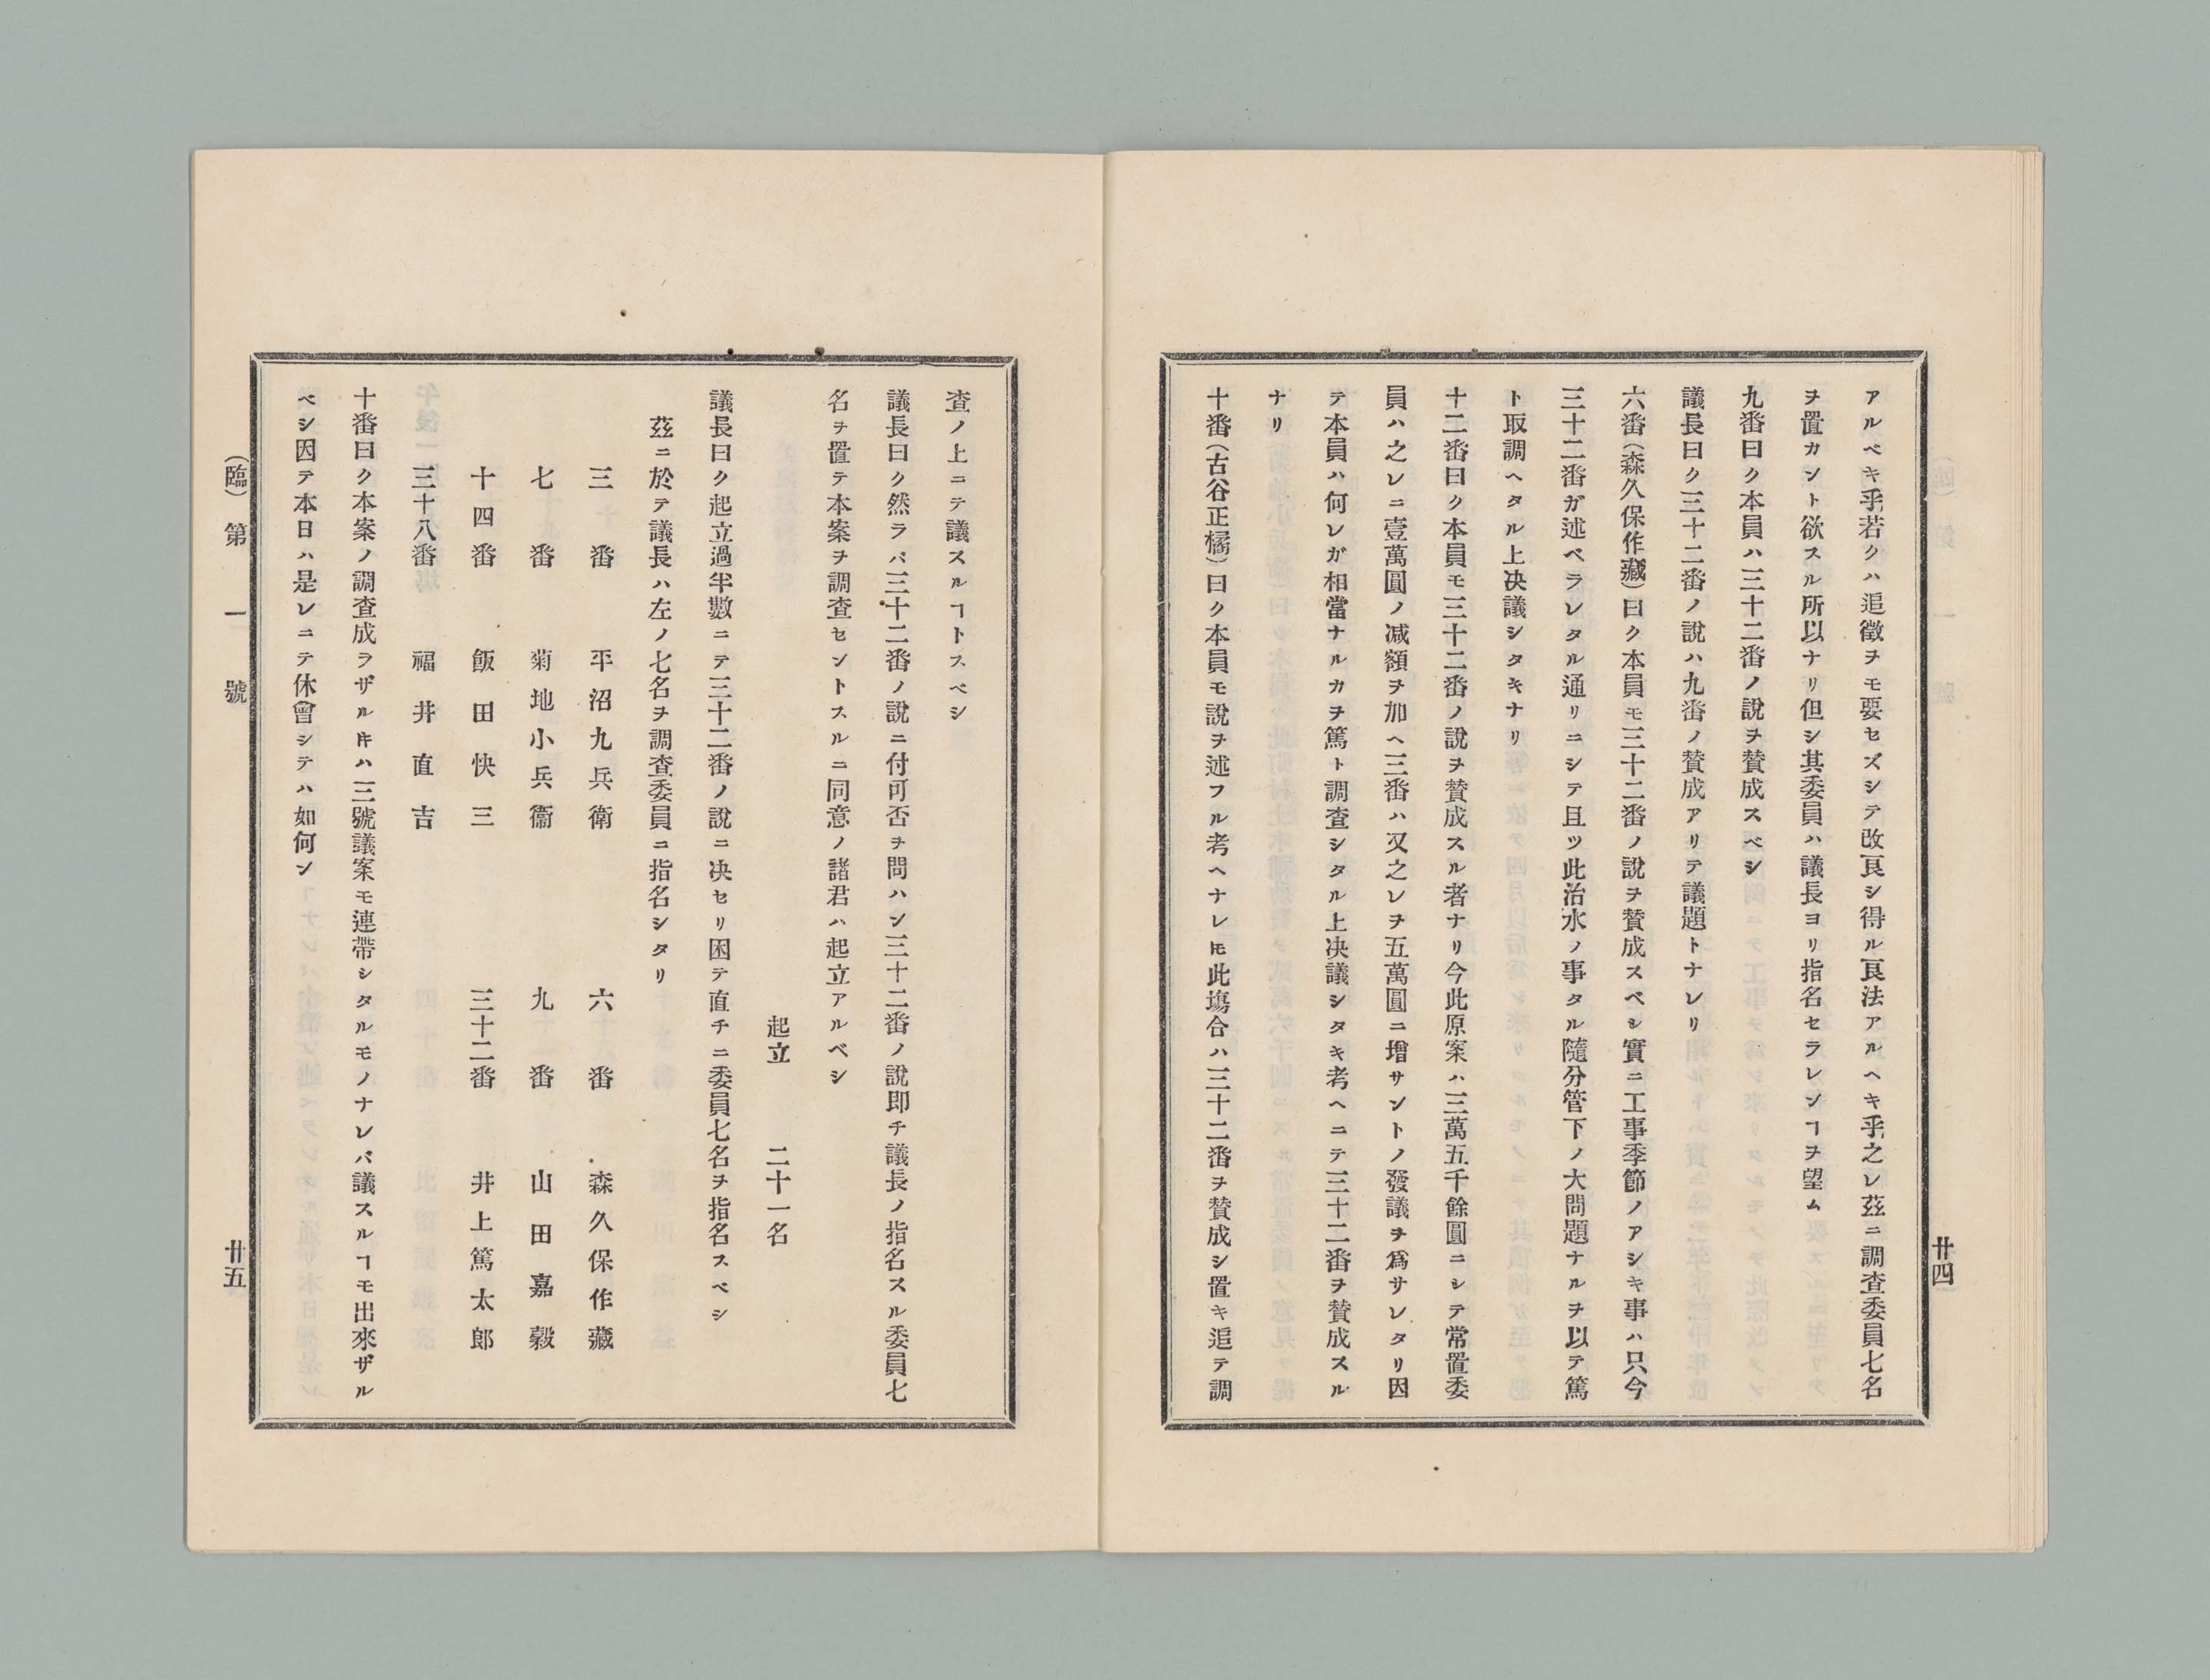 アルベキ乎若クハ追徵ヲモ要セズシテ改良シ得ル良法アルヘキ乎之レ茲ニ調查委員七名
ヲ置カント欲スル所以ナリ但シ其委員ハ議長ヨリ指名セラレンヿヲ望ム
九番曰ク本員ハ三十二番ノ說ヲ賛成スベシ
議長曰ク三十二番ノ說ハ九番ノ賛成アリテ議題トナレリ
六番（森久保作藏）曰ク本員モ三十二番ノ說ヲ賛成スベシ實ニ工事季節ノアシキ事ハ只今
三十二番ガ述ベラレタル通リニシテ且ツ此治水ノ事タル隨分管下ノ大問題ナルヲ以テ篤
ト取調ヘタル上决議シタキナリ
十二番曰ク本員モ三十二番ノ說ヲ賛成スル者ナリ今此原案ハ三萬五千餘圓ニシテ常置委
員ハ之レニ壹萬圓ノ减額ヲ加ヘ三番ハ又之レヲ五萬圓ニ增サントノ發議ヲ爲サレタリ因
テ本員ハ何レガ相當ナルカヲ篤ト調查シタル上决議シタキ考ヘニテ三十二番ヲ賛成スル
ナリ
十番（古谷正橘）曰ク本員モ說ヲ述フル考ヘナレ𪜈此塲合ハ三十二番ヲ賛成シ置キ追テ調
廿四
查ノ上ニテ議スルヿトスベシ
議長曰ク然ラバ三十二番ノ說ニ付可否ヲ問ハン三十二番ノ說即チ議長ノ指名スル委員七
名ヲ置テ本案ヲ調查セントスルニ同意ノ諸君ハ起立アルベシ
起立　二十一名
議長曰ク起立過半數ニテ三十二番ノ說ニ决セリ因テ直チニ委員七名ヲ指名スベシ
茲ニ於テ議長ハ左ノ七名ヲ調查委員ニ指名シタリ
三番　平沼九兵衛　六番　森久保作藏
七番　菊地小兵衞　九番　山田嘉穀
十四番　飯田快三　三十二番　井上篤太郎
三十八番　福井直吉
十番曰ク本案ノ調查成ラザル𪜈ハ三號議案モ連帶シタルモノナレバ議スルヿモ出來ザル
ベシ因テ本日ハ是レニテ休會シテハ如何ン
（臨）第一號　廿五